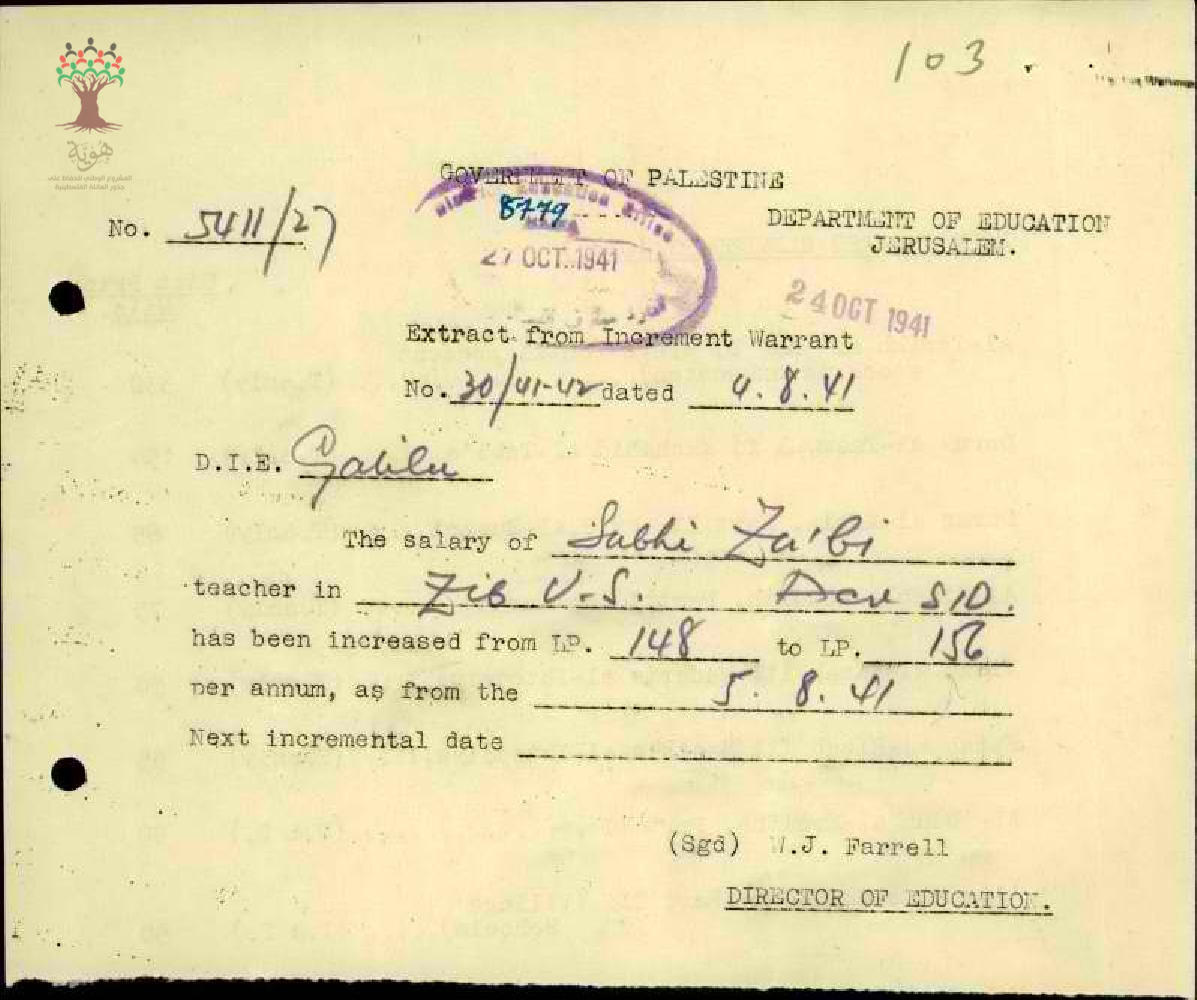 103.
هوية
المشروع الوطني للحفاظ على
جذور العائلة الفلسطينية
GOVERNMENT OF PALESTINE
Education Office
8779
No. 5411/27
DEPARTMENT OF EDUCATION
JERUSALEM.
27 OCT. 1941
24 OCT 1941
Extract from Increment Warrant
No. 30/41-42 dated 4.8.41
D.I.E. Galilee
The salary of Subhi Za'bi
teacher in Zib V.S. Acre S/D.
has been increased from LP. 148 to LP. 156
per annum, as from the 5.8.41
Next incremental date
(Sgd) W.J. Farrell
DIRECTOR OF EDUCATION.